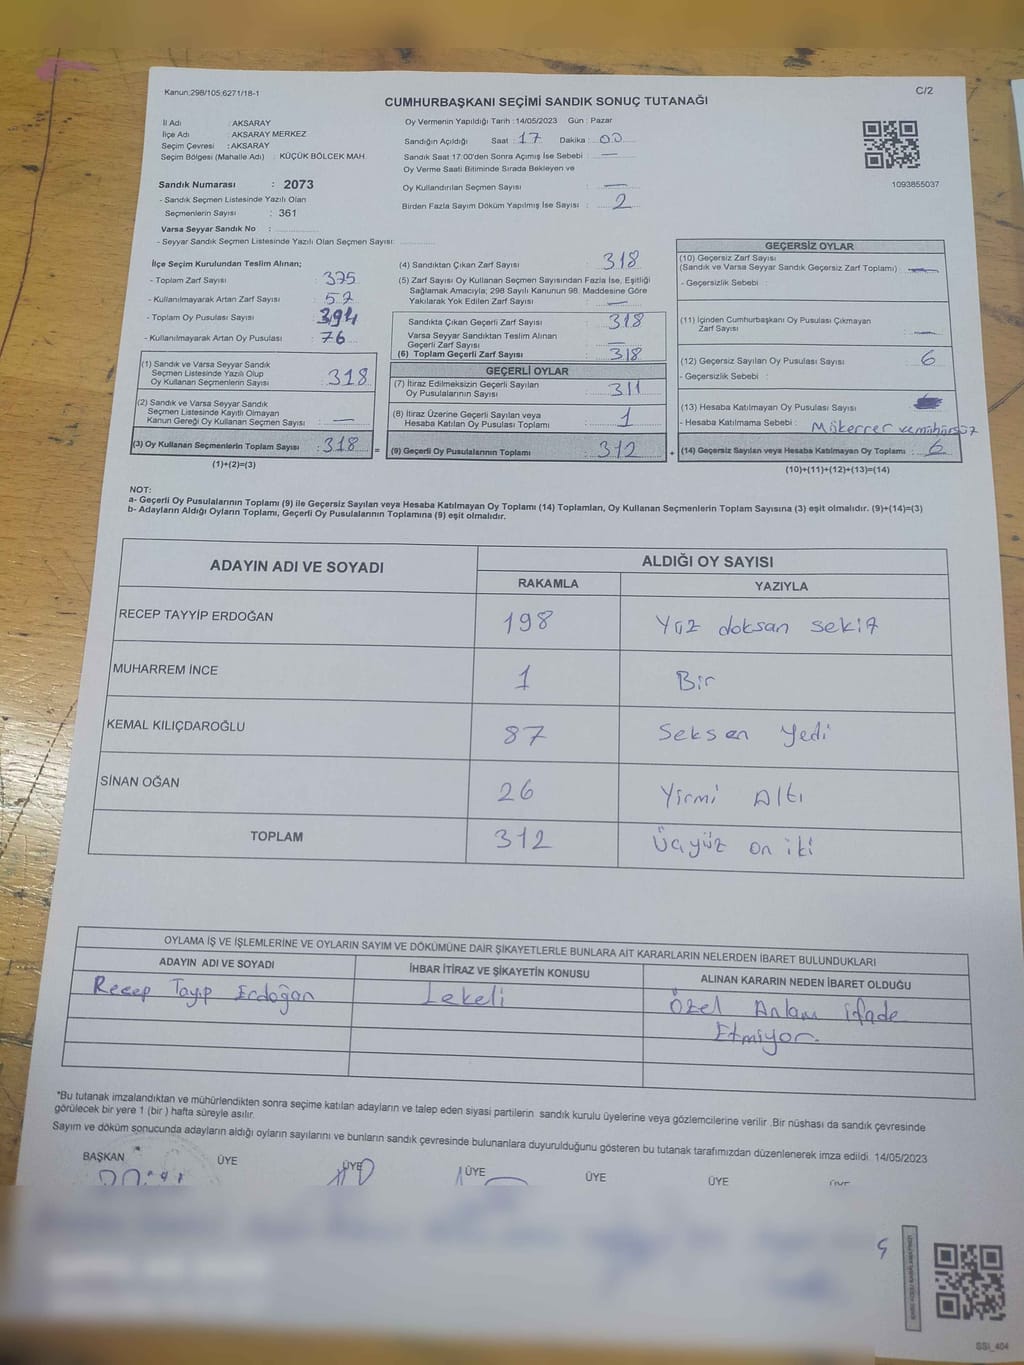 Kanun:298/105;6271/18-1
C/2
CUMHURBAŞKANI SEÇİMİ SANDIK SONUÇ TUTANAĞI
İl Adı : AKSARAY
İlçe Adı : AKSARAY MERKEZ
Seçim Çevresi : AKSARAY
Seçim Bölgesi (Mahalle Adı) : KÜÇÜK BÖLCEK MAH.
Sandık Numarası : 2073
- Sandık Seçmen Listesinde Yazılı Olan
Seçmenlerin Sayısı : 361
Varsa Seyyar Sandık No :
- Seyyar Sandık Seçmen Listesinde Yazılı Olan Seçmen Sayısı:
Oy Vermenin Yapıldığı Tarih :14/05/2023 Gün : Pazar
Sandığın Açıldığı Saat : 17 Dakika : 00
Sandık Saat 17:00'den Sonra Açımış İse Sebebi : —
Oy Verme Saati Bitiminde Sırada Bekleyen ve
Oy Kullandırılan Seçmen Sayısı : —
Birden Fazla Sayım Döküm Yapılmış İse Sayısı : 2
1093855037
İlçe Seçim Kurulundan Teslim Alınan;
- Toplam Zarf Sayısı : 375
- Kullanılmayarak Artan Zarf Sayısı : 57
- Toplam Oy Pusulası Sayısı : 394
- Kullanılmayarak Artan Oy Pusulası : 76
(1) Sandık ve Varsa Seyyar Sandık
Seçmen Listesinde Yazılı Olup
Oy Kullanan Seçmenlerin Sayısı : 318
(2) Sandık ve Varsa Seyyar Sandık
Seçmen Listesinde Kayıtlı Olmayan
Kanun Gereği Oy Kullanan Seçmen Sayısı : —
(3) Oy Kullanan Seçmenlerin Toplam Sayısı : 318 =
(1)+(2)=(3)
(4) Sandıktan Çıkan Zarf Sayısı : 318
(5) Zarf Sayısı Oy Kullanan Seçmen Sayısından Fazla İse, Eşitliği
Sağlamak Amacıyla; 298 Sayılı Kanunun 98. Maddesine Göre
Yakılarak Yok Edilen Zarf Sayısı : —
Sandıkta Çıkan Geçerli Zarf Sayısı : 318
Varsa Seyyar Sandıktan Teslim Alınan
Geçerli Zarf Sayısı : —
(6) Toplam Geçerli Zarf Sayısı : 318
GEÇERLİ OYLAR
(7) İtiraz Edilmeksizin Geçerli Sayılan
Oy Pusulalarının Sayısı : 311
(8) İtiraz Üzerine Geçerli Sayılan veya
Hesaba Katılan Oy Pusulası Toplamı : 1
(9) Geçerli Oy Pusulalarının Toplamı : 312 +
GEÇERSİZ OYLAR
(10) Geçersiz Zarf Sayısı
(Sandık ve Varsa Seyyar Sandık Geçersiz Zarf Toplamı) : —
- Geçersizlik Sebebi :
(11) İçinden Cumhurbaşkanı Oy Pusulası Çıkmayan
Zarf Sayısı : —
(12) Geçersiz Sayılan Oy Pusulası Sayısı : 6
- Geçersizlik Sebebi :
(13) Hesaba Katılmayan Oy Pusulası Sayısı :
- Hesaba Katılmama Sebebi : Mükerrer ve mühürsüz
(14) Geçersiz Sayılan veya Hesaba Katılmayan Oy Toplamı : 6
(10)+(11)+(12)+(13)=(14)
NOT:
a- Geçerli Oy Pusulalarının Toplamı (9) ile Geçersiz Sayılan veya Hesaba Katılmayan Oy Toplamı (14) Toplamları, Oy Kullanan Seçmenlerin Toplam Sayısına (3) eşit olmalıdır. (9)+(14)=(3)
b- Adayların Aldığı Oyların Toplamı, Geçerli Oy Pusulalarının Toplamına (9) eşit olmalıdır.
ADAYIN ADI VE SOYADI ALDIĞI OY SAYISI
RAKAMLA YAZIYLA
RECEP TAYYİP ERDOĞAN 198 Yüz doksan sekiz
MUHARREM İNCE 1 Bir
KEMAL KILIÇDAROĞLU 87 Seksen Yedi
SİNAN OĞAN 26 Yirmi Altı
TOPLAM 312 Üçyüz on iki
OYLAMA İŞ VE İŞLEMLERİNE VE OYLARIN SAYIM VE DÖKÜMÜNE DAİR ŞİKAYETLERLE BUNLARA AİT KARARLARIN NELERDEN İBARET BULUNDUKLARI
ADAYIN ADI VE SOYADI İHBAR İTİRAZ VE ŞİKAYETİN KONUSU ALINAN KARARIN NEDEN İBARET OLDUĞU
Recep Tayip Erdoğan Lekeli Özel Anlam ifade
Etmiyor.
*Bu tutanak imzalandıktan ve mühürlendikten sonra seçime katılan adayların ve talep eden siyasi partilerin sandık kurulu üyelerine veya gözlemcilerine verilir .Bir nüshası da sandık çevresinde
görülecek bir yere 1 (bir ) hafta süreyle asılır.
Sayım ve döküm sonucunda adayların aldığı oyların sayılarını ve bunların sandık çevresinde bulunanlara duyurulduğunu gösteren bu tutanak tarafımızdan düzenlenerek imza edildi. 14/05/2023
BAŞKAN ÜYE ÜYE ÜYE ÜYE ÜYE ÜYE
SSI_404